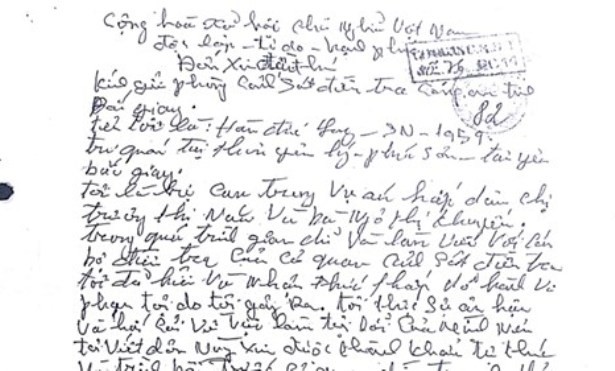 Cộng hoà xã hội chủ nghĩa Việt Nam
độc lập - tự do - hạnh phúc
Đơn xin đầu thú
kính gửi phòng cảnh sát điều tra công an tỉnh
Bắc giang.
tên tôi là: Hàn đức Long - SN - 1959.
trú quán tại thôn yên lý - phúc sơn - tân yên
bắc giang.
tôi là bị can trong vụ án hiếp dâm chị
trương thị Năm và bà Ngô thị Khuyến.
trong quá trình giam giữ và làm việc với cán
bộ điều tra của cơ quan cảnh sát điều tra
tôi đã hiểu và nhận thức pháp hành vi
phạm tội do tôi gây ra. tôi thực sự ân hận
và hối cải về việc làm tội lỗi của mình nên
tôi viết đơn này xin được thành khẩn tự thú
82